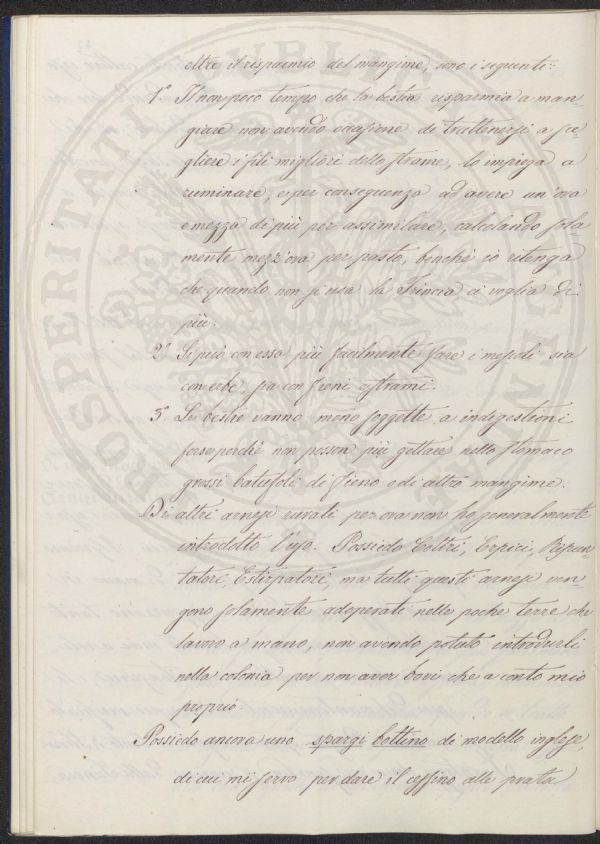 oltre il risparmio del mangime, sono i seguenti:
1° Il non poco tempo che la bestia risparmia a man-
giare non avendo occasione di trattenersi a sce-
gliere i fili migliori dello strame, lo impiega a
ruminare, e per conseguenza ad avere un'ora
e mezza di più per assimilare, calcolando sola
mente mezz'ora per pasto, benchè io ritenga
che quando non si usa la Trincia ci voglia di
più.
2° Si può con essa più facilmente fare i mescoli sia
con erbe, sia con fieni o strami.
3° Le bestie vanno meno soggette a indigestioni
forse perchè non posson più gettare nello stomaco
grossi batufoli di fieno o di altro mangime.
Di altri arnesi rurali per ora non ho generalmente
introdotto l'uso. Possiedo Coltri, Erpici, Ripun-
tatori, Estirpatori, ma tutti questi arnesi ven-
gono solamente adoperati nelle poche terre che
lavoro a mano, non avendo potuto introdurli
nella colonia per non aver bovi che a conto mio
proprio.
Possiedo ancora uno spargi bottino di modello inglese,
di cui mi servo per dare il cessino alle prata
PROSPERITATI PUBLICAE AUGENDAE